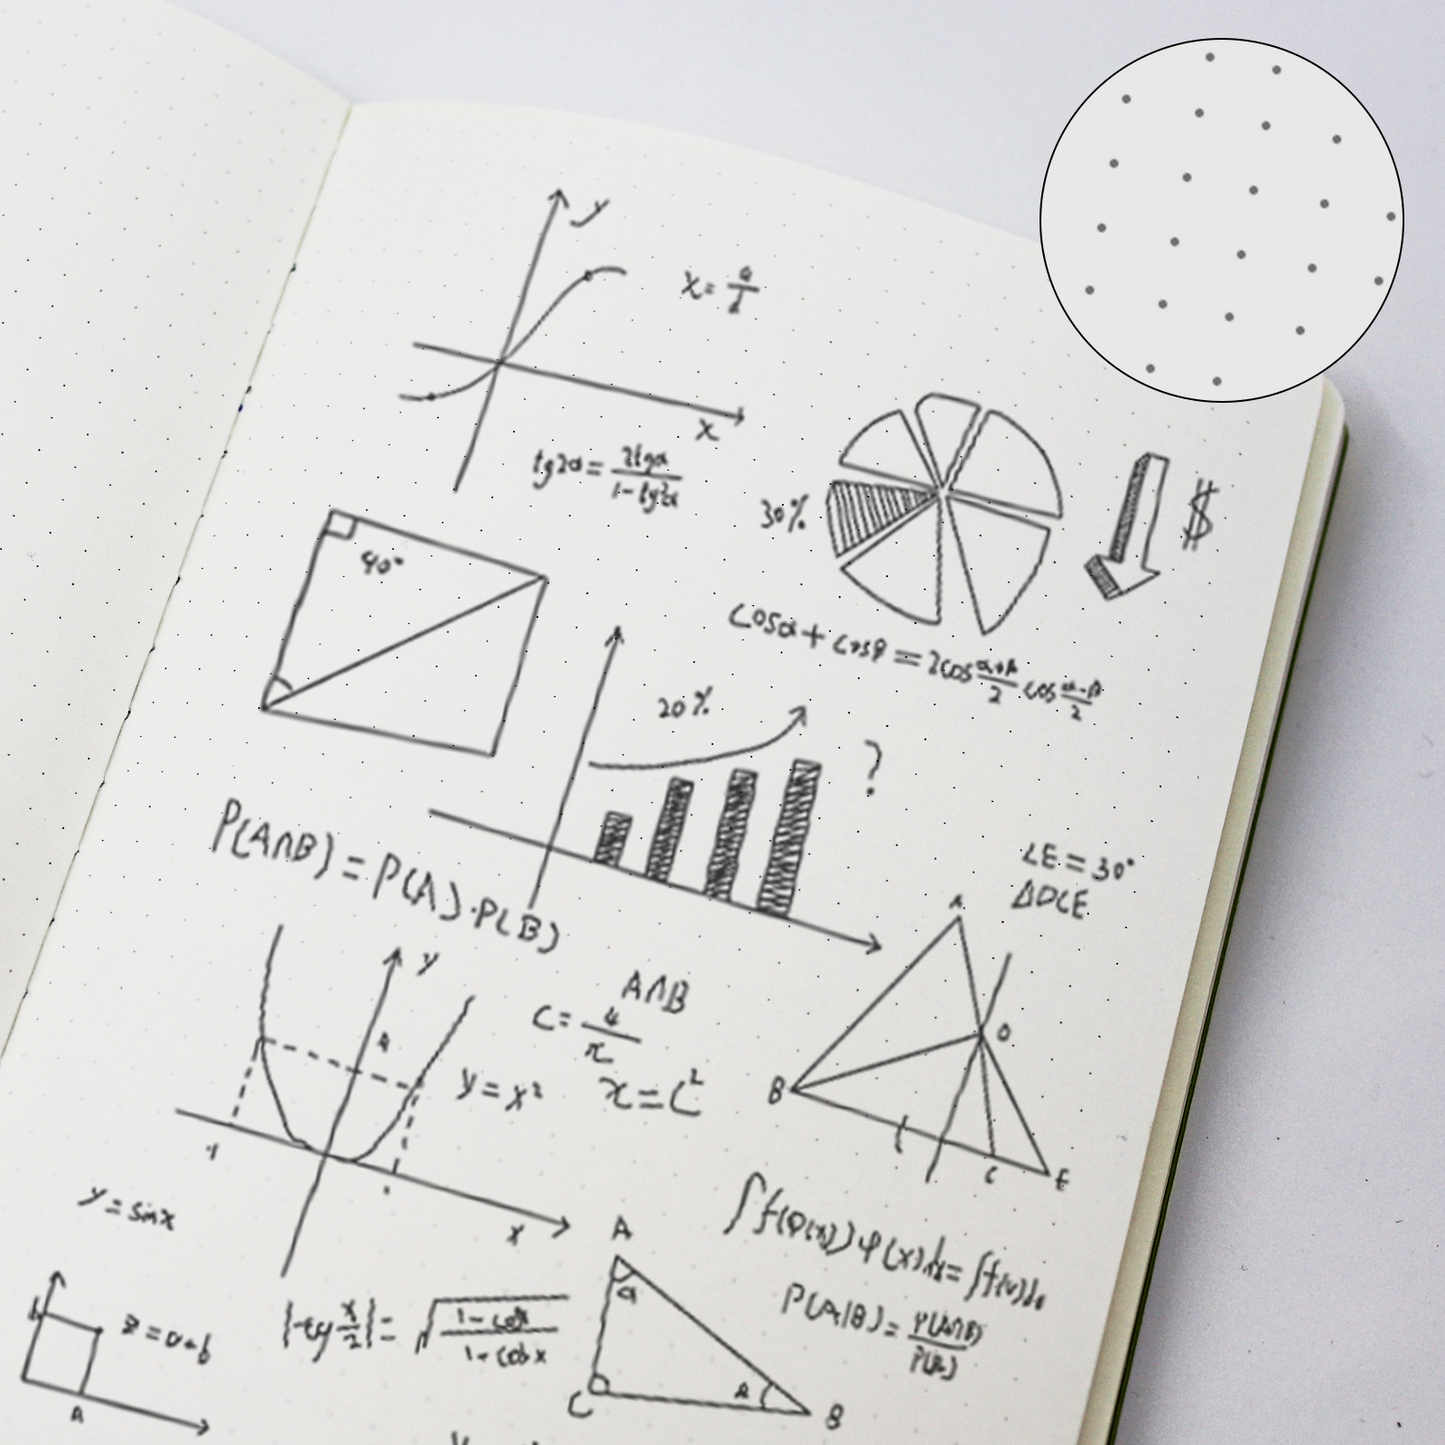 y
x = a/2
x
tg2α = 2tgα/1-tg2α
30%
$
40°
cosα + cosβ = 2cos α+β/2 cos α-β/2
20%
?
P(A∩B) = P(A)·P(B)
∠E = 30°
ΔDCE
A
y
A∩B
C = 4/x
O
B
y = x²
x = C²
-1
C
E
y = sinx
x
A
∫f(φ(x))φ(x)dx = ∫f(u)du
α
P(A|B) = P(A∩B)/P(B)
b
z = a+b
|tg x/2| = √1-cosx/1-cosx
C
B
A